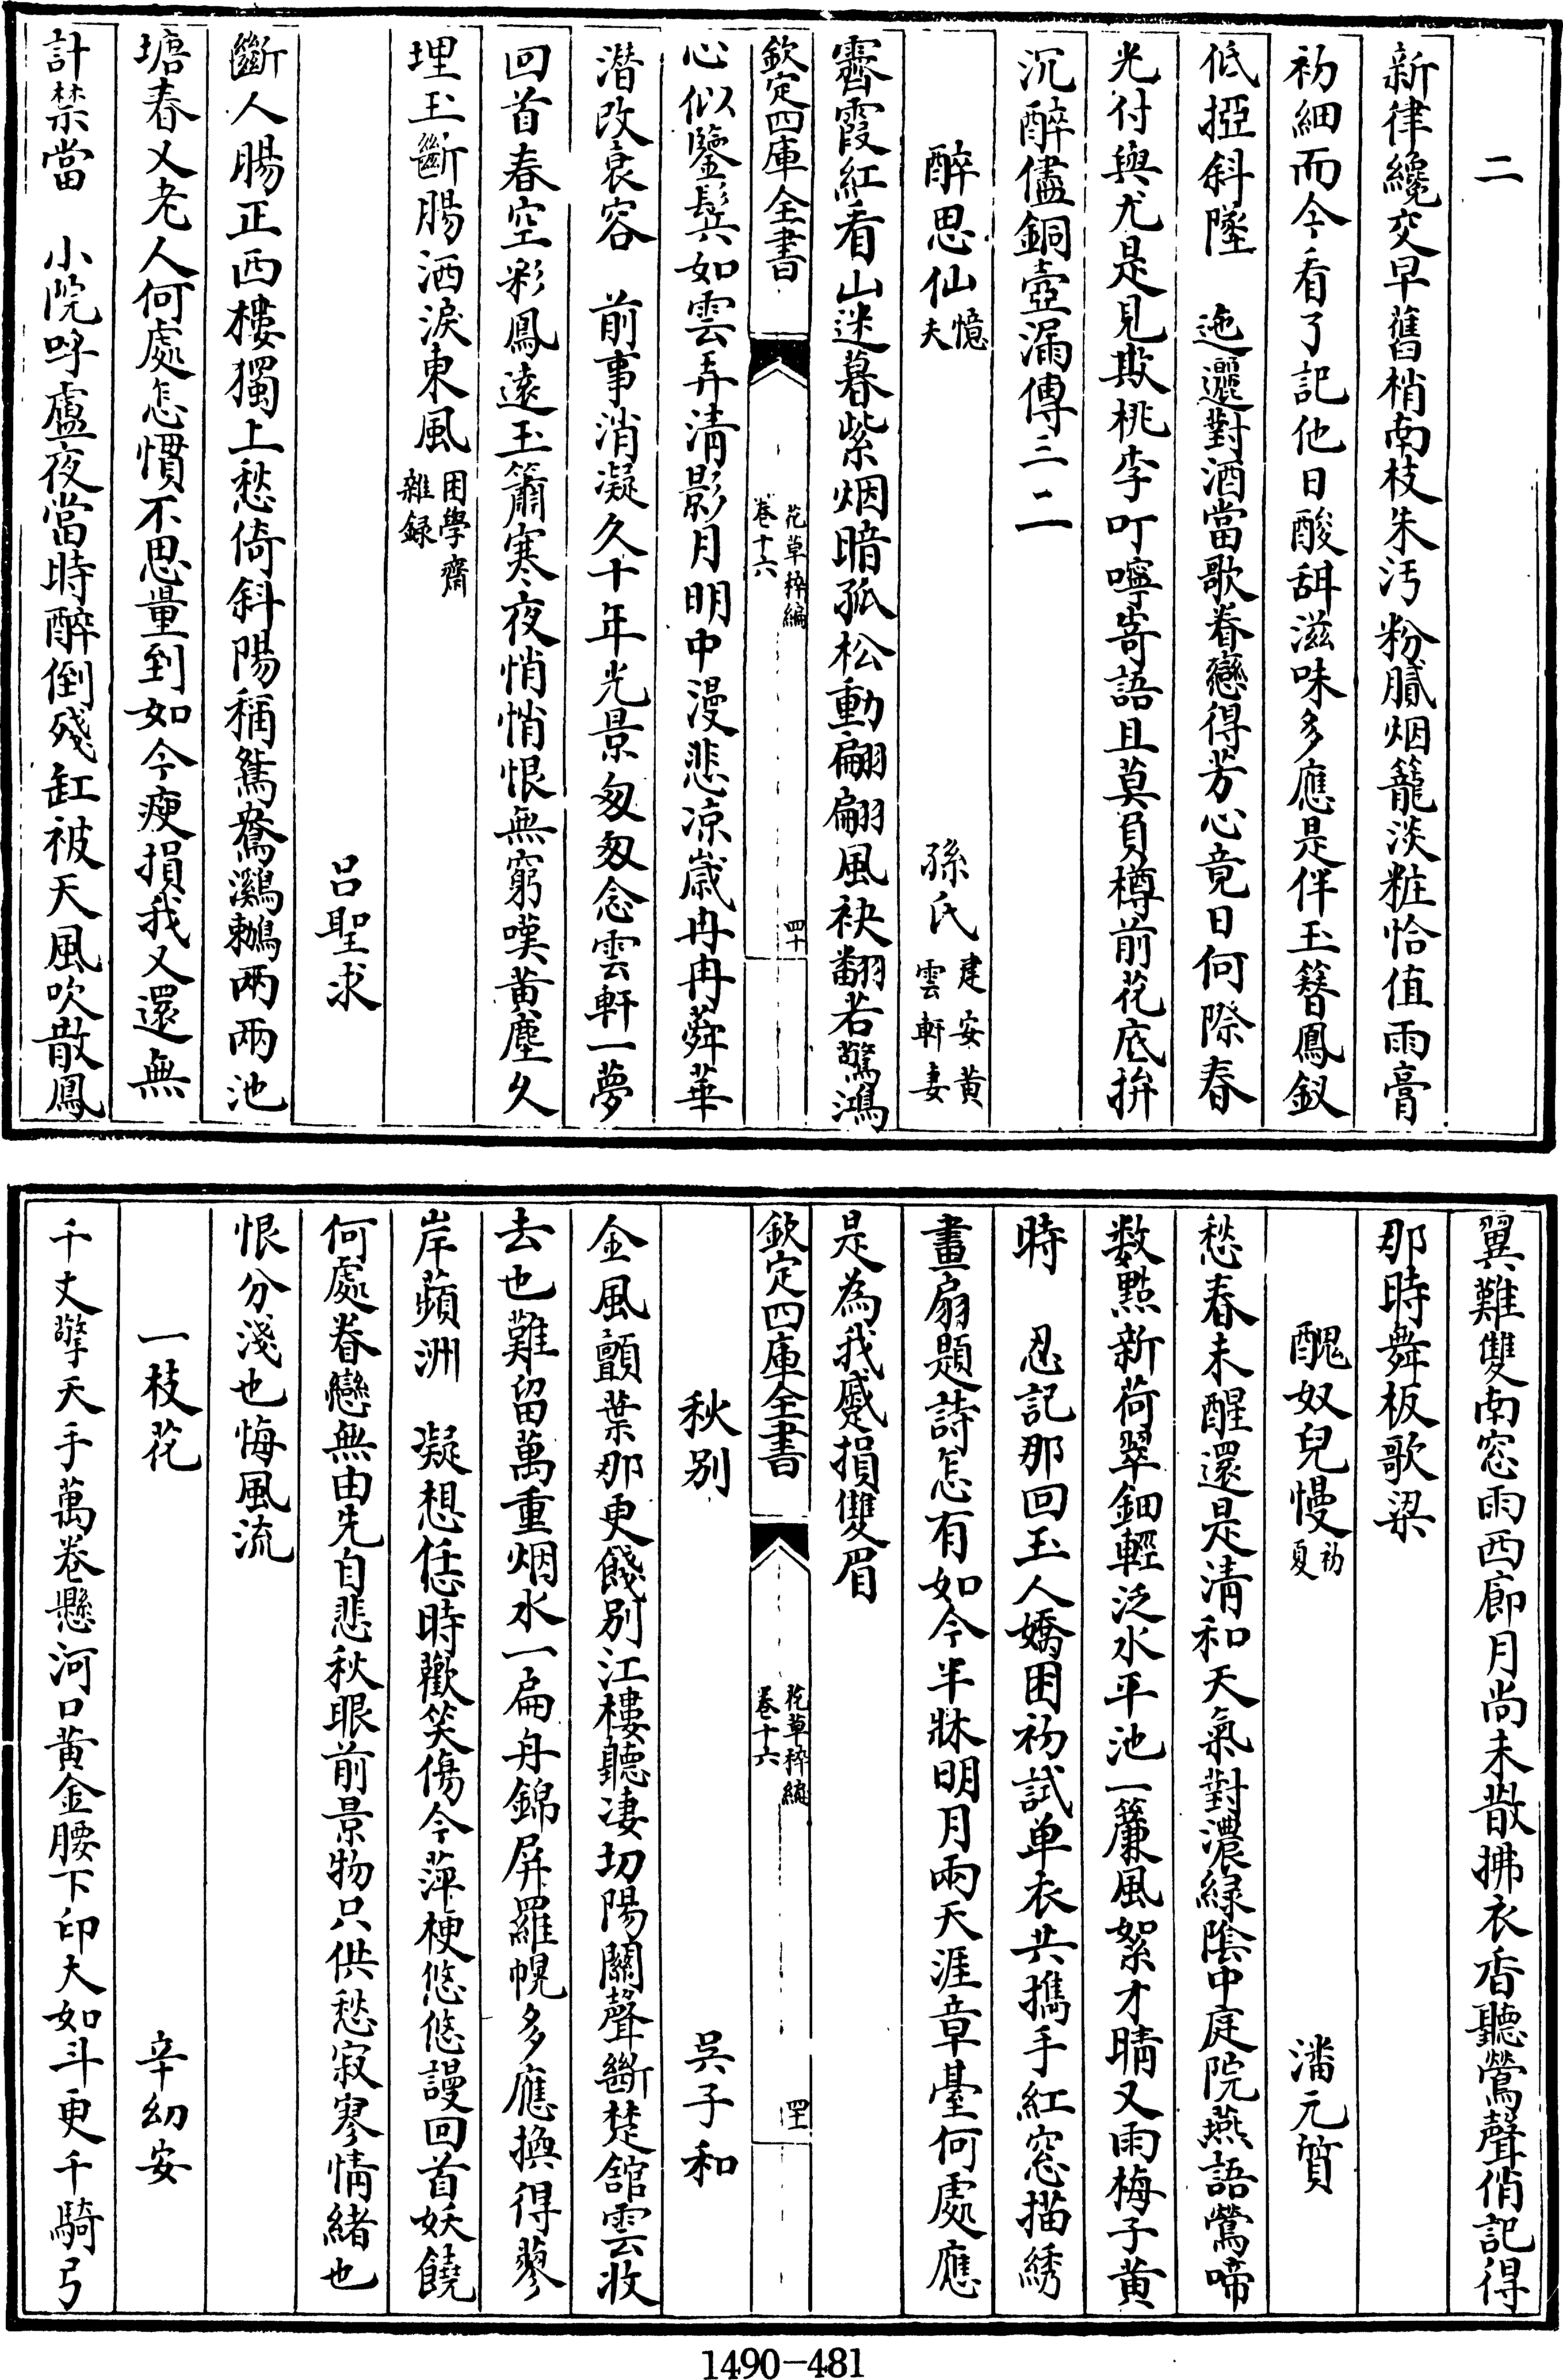 二
新律纔交早舊梢南枝朱汚粉膩烟籠淡粧恰值雨膏
初細而今看了記他日酸甜滋味多應是伴玉簪鳳釵
低掗斜墜　迤邐對酒當歌眷戀得芳心竟日何際春
光付與尤是見欺桃李叮嚀寄語且莫負樽前花底拚
沉醉儘銅壺漏傳三二
醉思仙憶夫　孫氏建安黃雲軒妻
霽霞紅看山迷暮紫烟暗孤松動翩翩風袂翻若驚鴻
欽定四庫全書　花草稡編卷十六　四十
心似鑒鬂如雲弄清影月明中漫悲凉歲冉冉蕣華
潛改衰容　前事消凝久十年光景匆匆念雲軒一夢
回首春空彩鳳遠玉簫寒夜悄悄恨無窮嘆黃塵久
埋玉斷腸洒淚東風困學齋雜録
呂聖求
斷人腸正西樓獨上愁倚斜陽稱鴛鴦鸂鶒兩兩池
塘春又老人何處怎慣不思量到如今瘦損我又還無
計禁當　小院呼盧夜當時醉倒殘缸被天風吹散鳳
翼難雙南窓雨西廊月尚未散拂衣香聽鶯聲俏記得
那時舞板歌梁
醜奴兒慢初夏　潘元質
愁春未醒還是清和天氣對濃緑陰中庭院燕語鶯啼
数點新荷翠鈿輕泛水平池一簾風絮才晴又雨梅子黃
時　忍記那回玉人嬌困初試单衣共攜手紅窓描綉
畫扇題詩怎有如今半牀明月兩天涯章臺何處應
是為我蹙損雙眉
欽定四庫全書　花草稡編卷十六　四十一
秋别　吳子和
金風顫葉那更餞别江樓聽凄切陽關聲斷楚舘雲收
去也難留萬重烟水一扁舟錦屏羅幌多應換得蓼
岸蘋洲　凝想恁時歡笑傷今萍梗悠悠謾回首妖饒
何處眷戀無由先自悲秋眼前景物只供愁寂寥情緒也
恨分淺也悔風流
一枝花　辛幼安
千丈擎天手萬卷懸河口黃金腰下印大如斗更千騎弓
1490-481